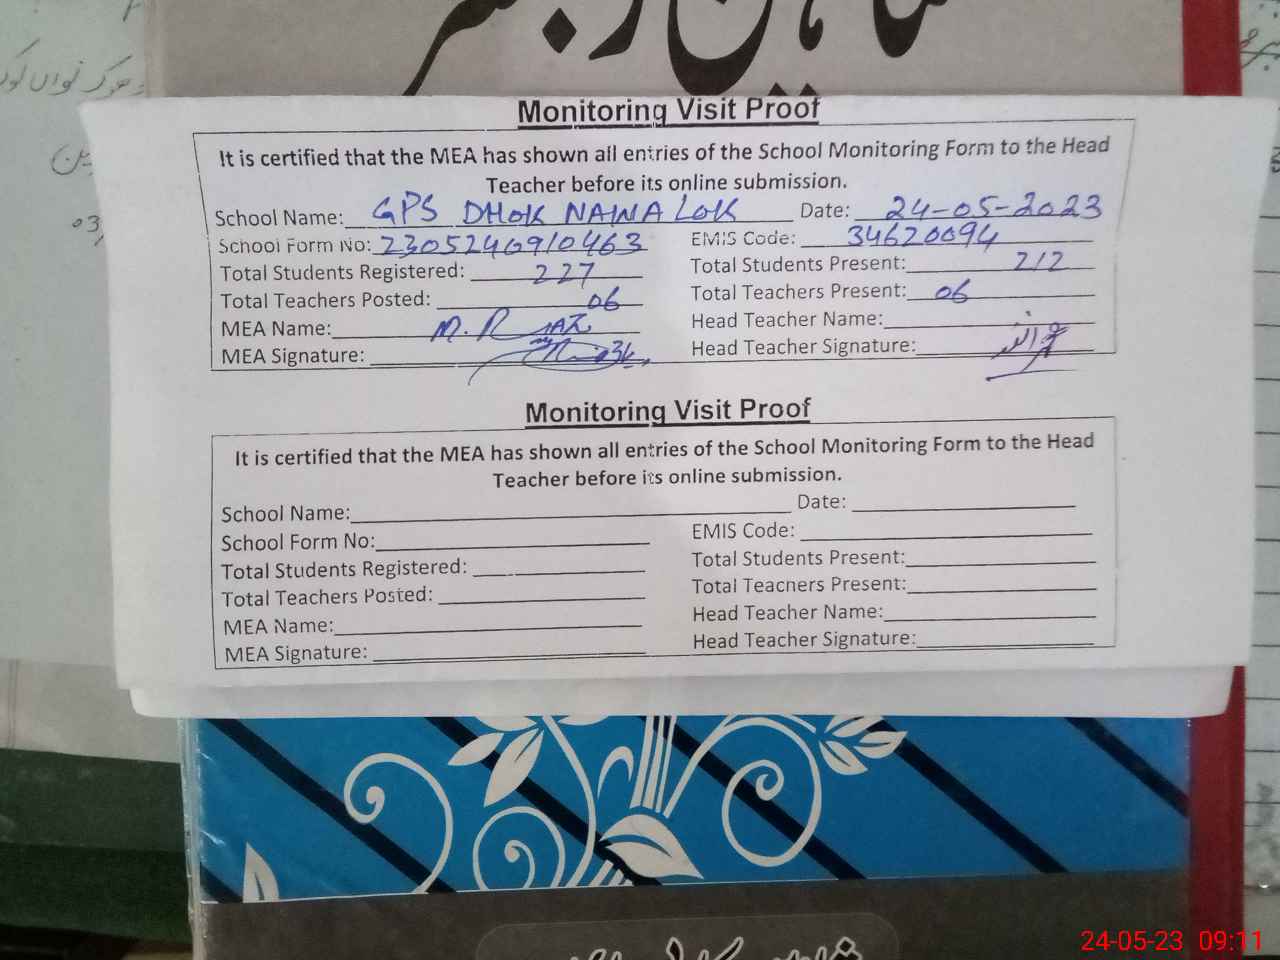 Monitoring Visit Proof
It is certified that the MEA has shown all entries of the School Monitoring Form to the Head
Teacher before its online submission.
School Name: GPS DHOK NAWA LOK Date: 24-05-2023
School Form No: 2305240910463 EMIS Code: 34620094
Total Students Registered: 227 Total Students Present: 212
Total Teachers Posted: 06 Total Teachers Present: 06
MEA Name: M. RIAZ Head Teacher Name:
MEA Signature: Head Teacher Signature:
Monitoring Visit Proof
It is certified that the MEA has shown all entries of the School Monitoring Form to the Head
Teacher before its online submission.
School Name: Date:
School Form No: EMIS Code:
Total Students Registered: Total Students Present:
Total Teachers Posted: Total Teacners Present:
MEA Name: Head Teacher Name:
MEA Signature: Head Teacher Signature:
24-05-23 09:11